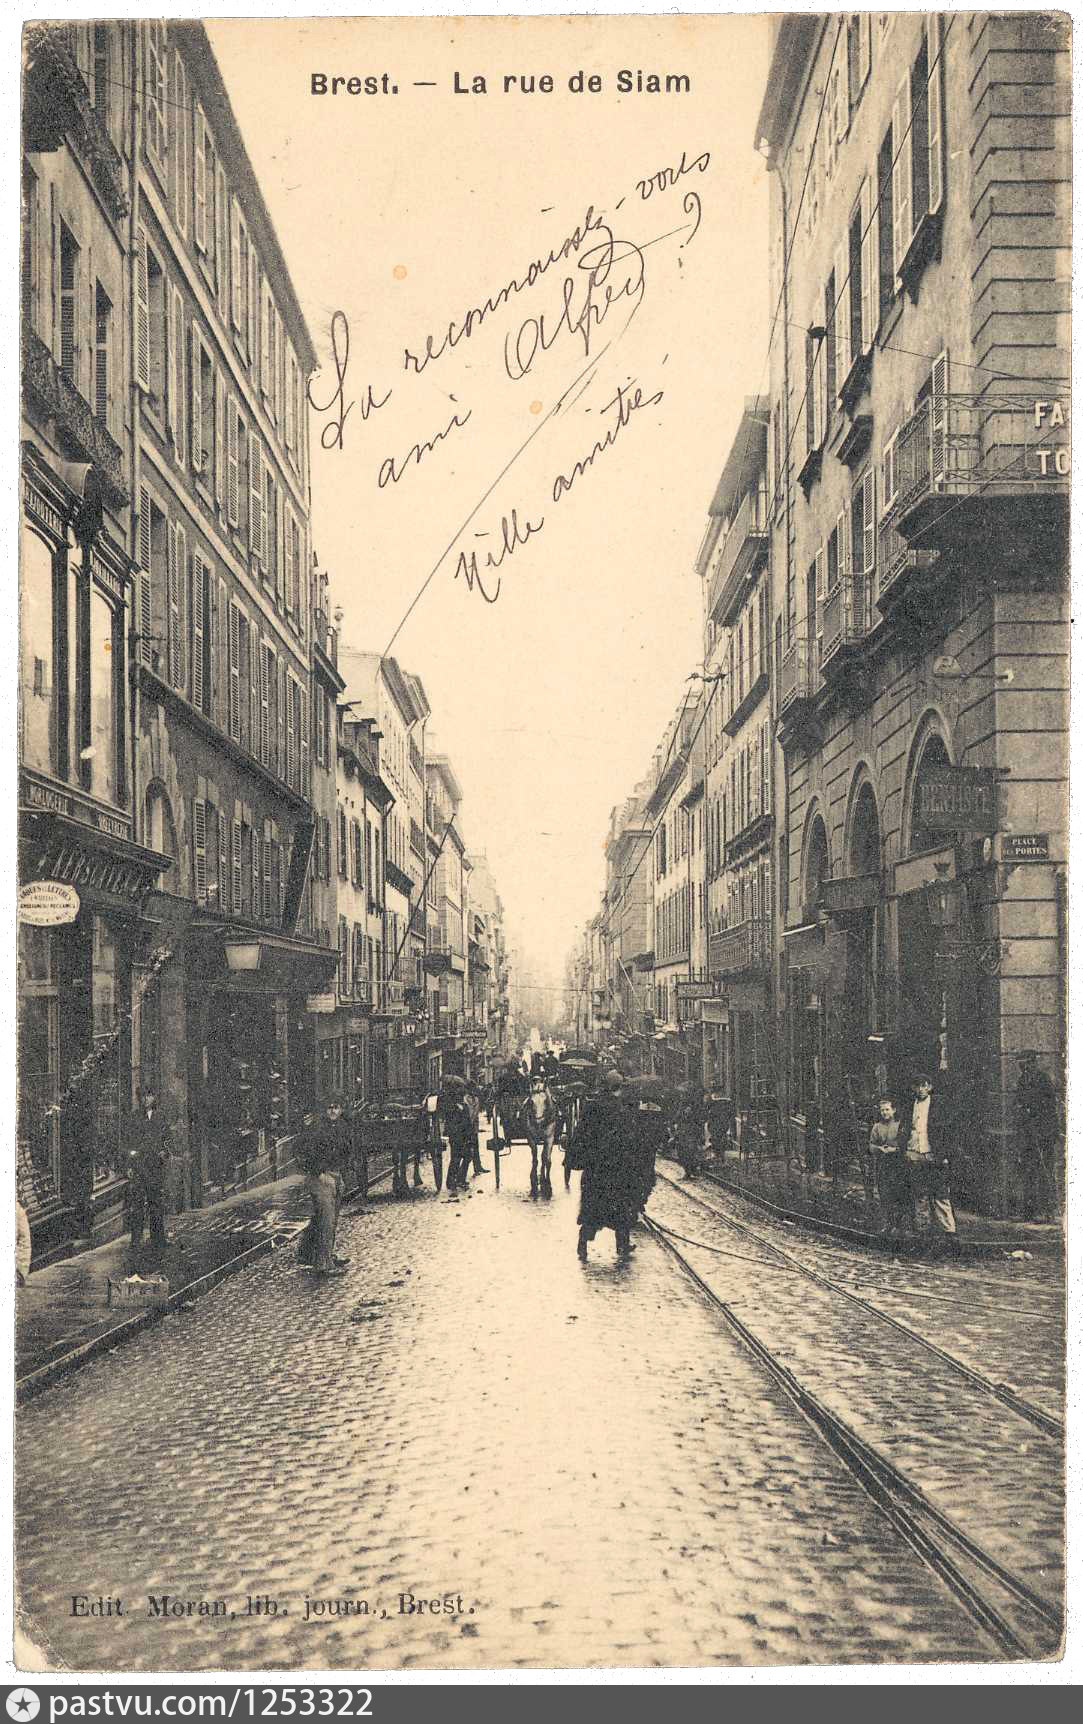 Brest. — La rue de Siam
La reconnaissez-vous
ami Alfred ?
Mille amitiés
FA
TO
DENTISTE
PLACE
DES PORTES
HORLOGERIE
Edit. Moran, lib. journ., Brest.
pastvu.com/1253322